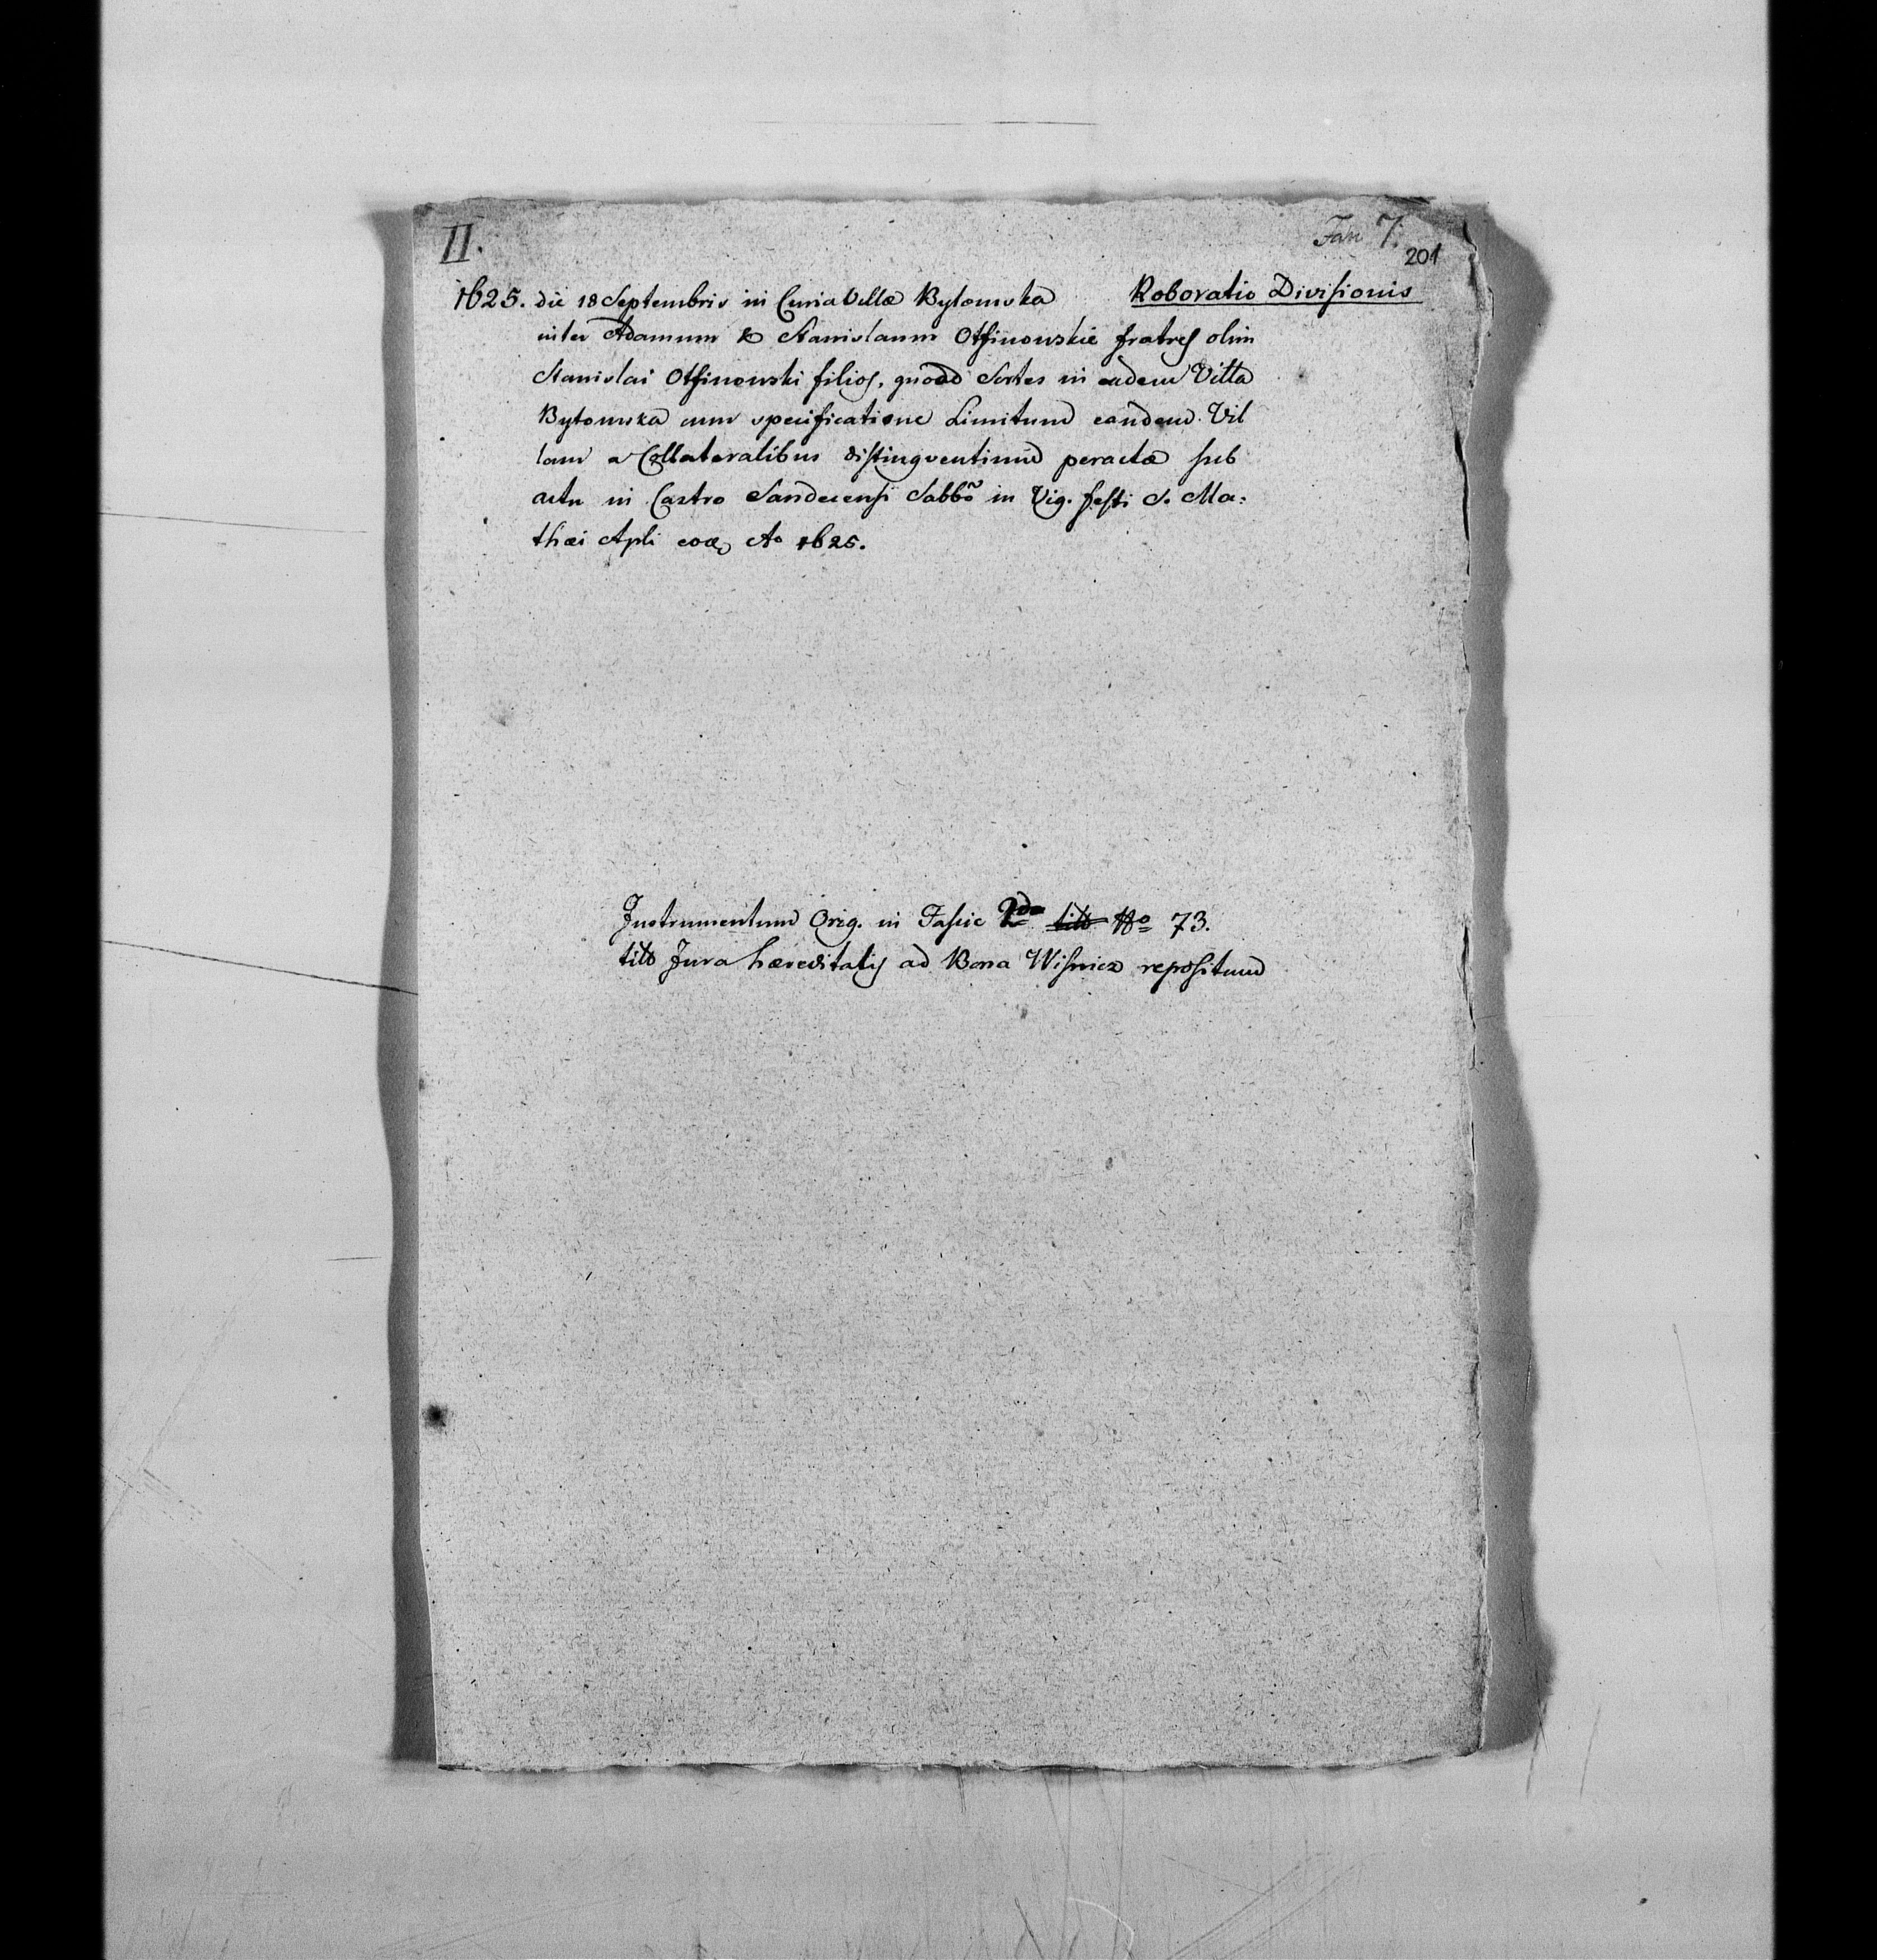 II.
Fan 7.
201
1625. die 18 Septembris in Curia Villæ Bytomska Roboratio Divisionis
inter Adamum & Stanislaum Otfinowskie fratres olim
Stanislai Otfinowski filios, quoad Sortes in eadem Villa
Bytomska cum specificatione Limitum eandem Vil
lam a Collateralibus distinguentium peractæ sub
actu in Castro Sandecensi Sabbõ in Vig. festi S. Ma:
thæi Apli eoq A° 1625.
Instrumentum Orig. in Fascic 2do N° 73.
titŏ Jura hæreditatis ad Bona Wisnicz repositum